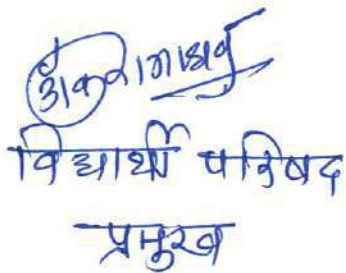 विद्यार्थी परिषद
प्रमुख